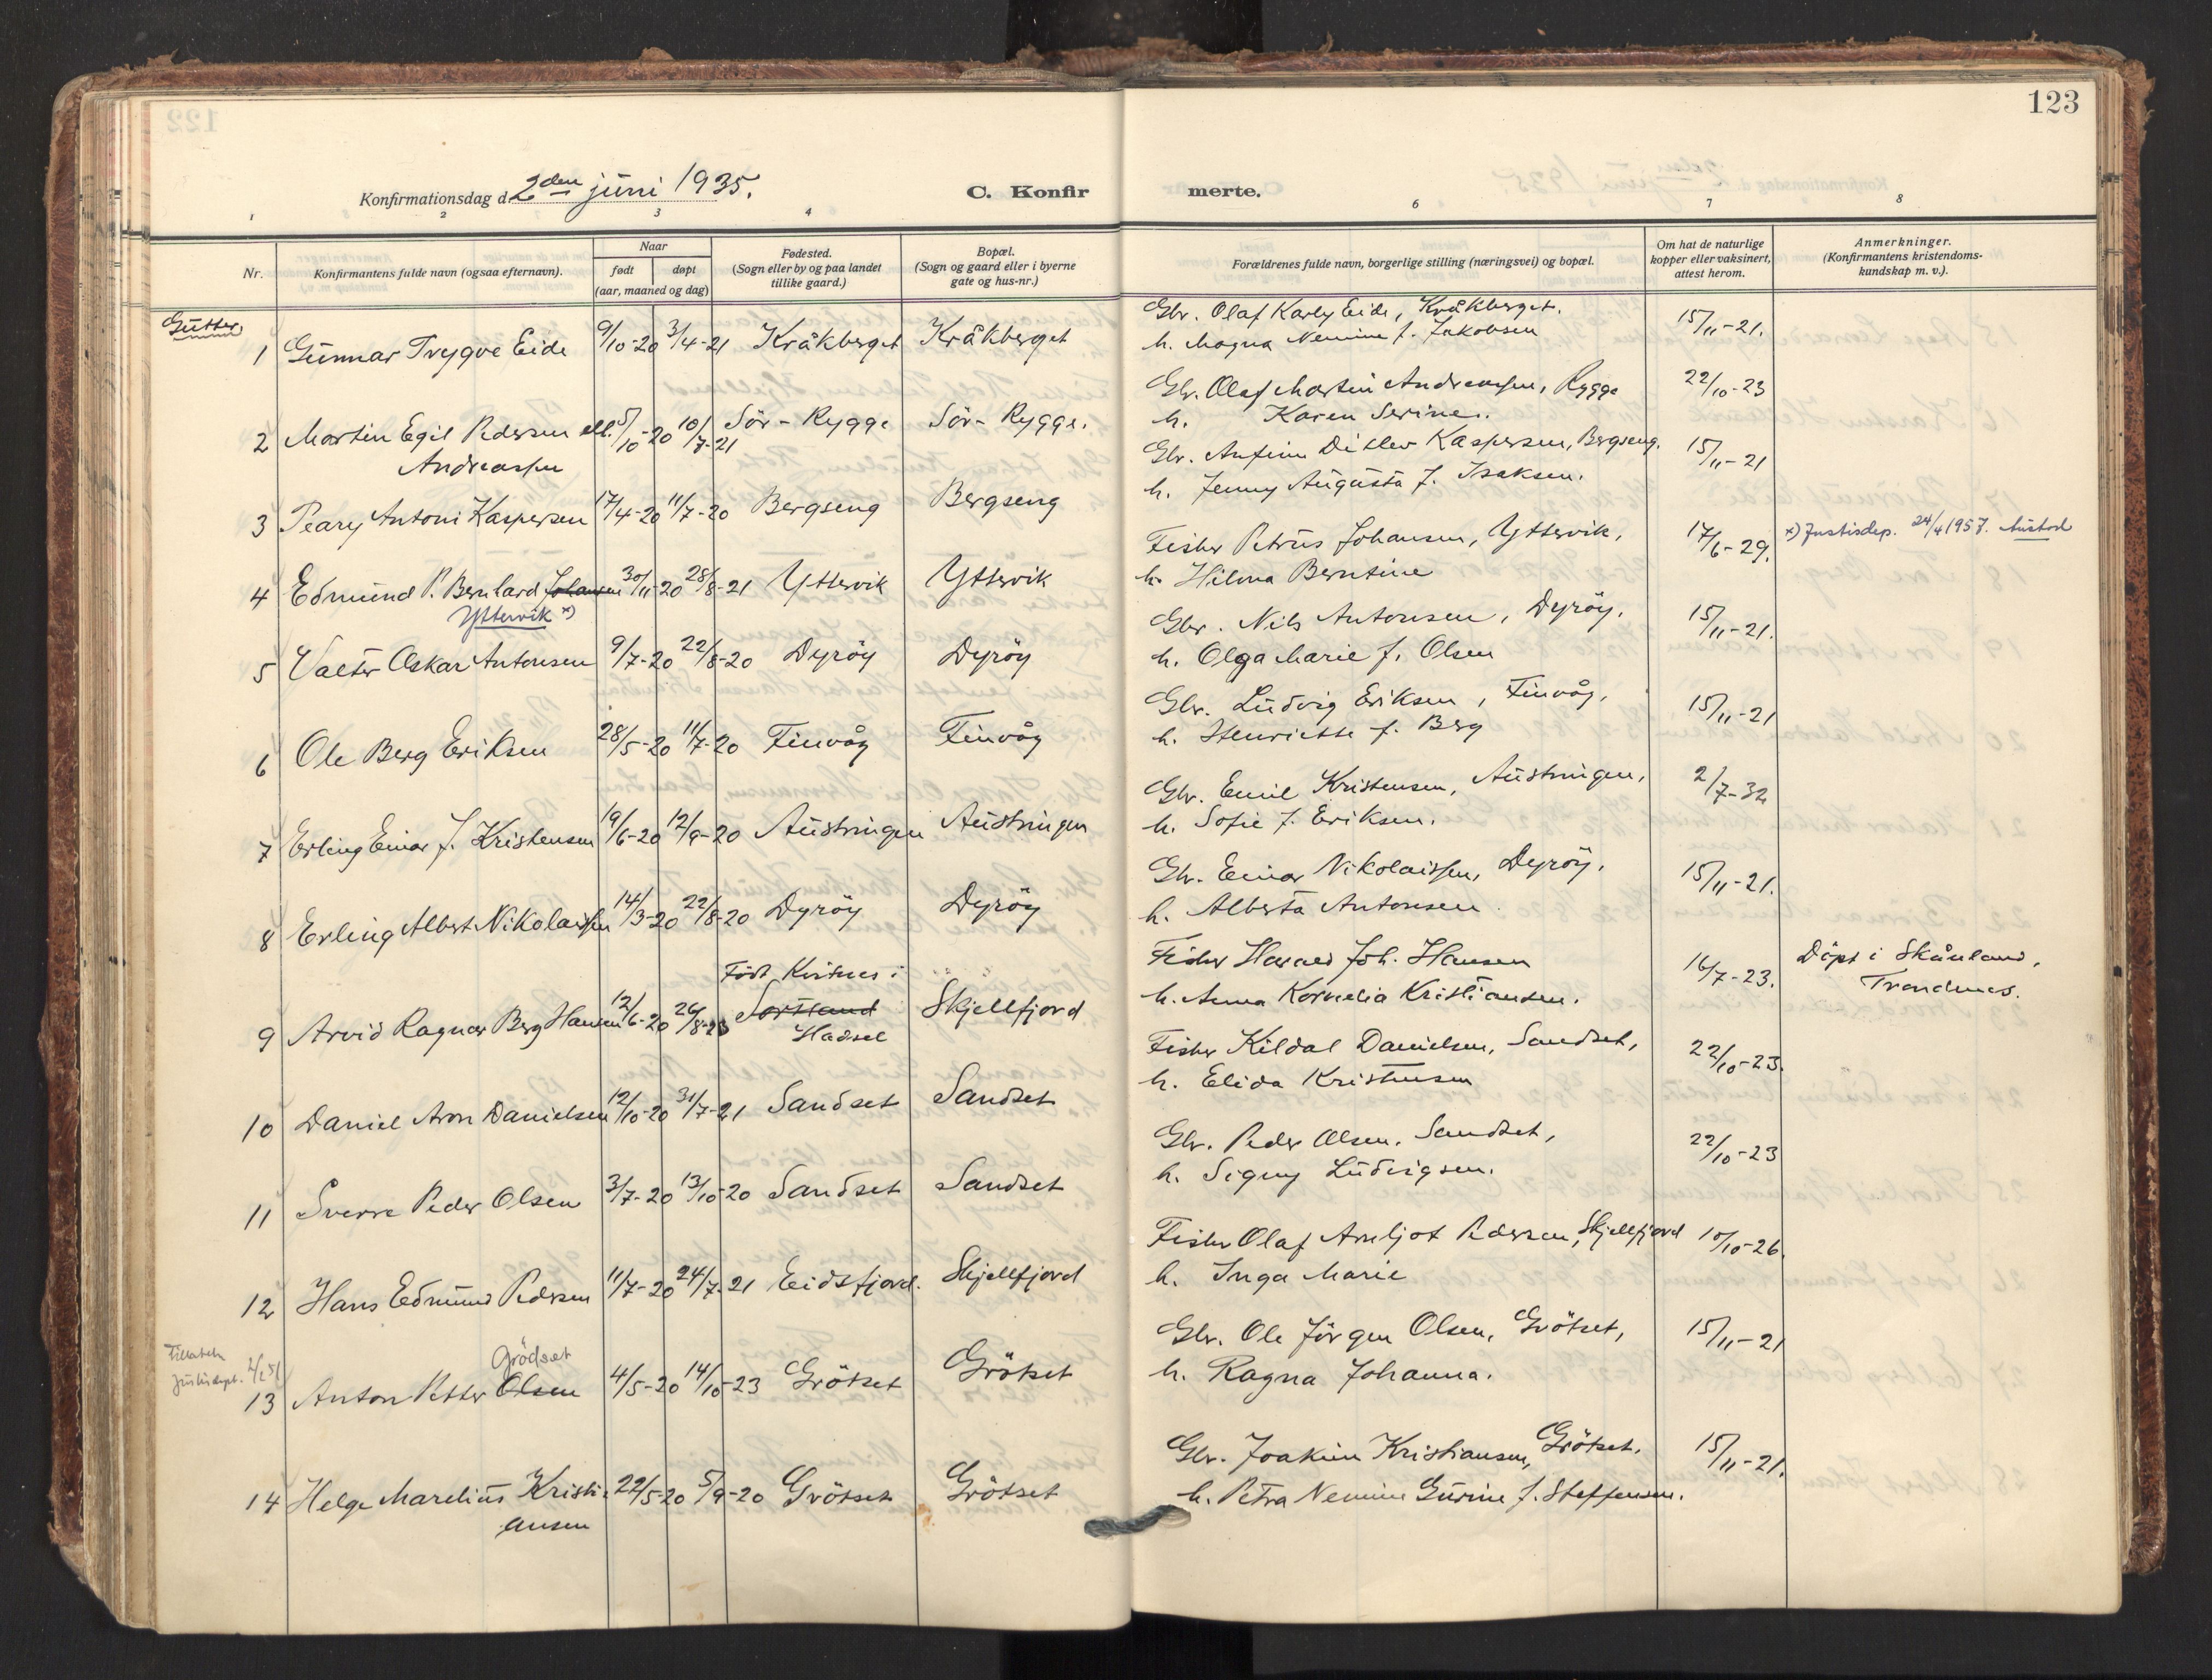 123
Konfirmationsdag d. 2den juni 1935.
C. Konfirmerte.
1 2 3 4 6 7 8
Nr.
Konfirmantens fulde navn (ogsaa efternavn).
Naar
født døpt
(aar, maaned og dag)
Fødested.
(Sogn eller by og paa landet
tillike gaard.)
Bopæl.
(Sogn og gaard eller i byerne
gate og hus-nr.)
Forældrenes fulde navn, borgerlige stilling (næringsvei) og bopæl.
Om hat de naturlige
kopper eller vaksinert,
attest herom.
Anmerkninger.
(Konfirmantens kristendoms-
kundskap m. v.).
Gutter
1 Gunnar Trygve Eide 9/10-20 3/4-21 Kråkberget Kråkberget
Gbr. Olaf Karly Eide, Kråkberget. 15/11-21.
h. Magna Nemine f. Jakobsen
2 Martin Egil Pedersen ell. 5/10-20 10/7-21 Sör-Rygge Sör-Rygge.
Andreassen
Gbr. Olaf Martin Andreassen, Rygge 22/10-23
h. Karen Serine.
3 Peary Antoni Kaspersen 17/4-20 11/7-20 Bergseng Bergseng
Gbr. Anfinn Ditlev Kaspersen, Bergseng. 15/11-21
h. Jenny Augusta f. Isaksen.
4 Edmund P. Bernhard Johansen 30/11-20 28/8-21 Yttervik Yttervik
Yttervik x)
Fisker Petrus Johansen, Yttervik, 17/6-29. x) Justisdep. 24/4 1957.
h. Hilma Berntine
5 Valter Oskar Antonsen 9/7-20 22/8-20 Dyröy Dyröy
Gbr. Nils Antonsen, Dyröy. 15/11-21.
h. Olga Marie f. Olsen
6 Ole Berg Eriksen 28/5-20 11/7-20 Finvåg Finvåg
Gbr. Ludvig Eriksen, Finvåg. 15/11-21
h. Henriette f. Berg
7 Erling Einar J. Kristensen 19/6-20 12/9-20 Austringen Austringen
Gbr. Emil Kristensen, Austringen, 2/7-32
h. Sofie f. Eriksen.
8 Erling Albert Nikolaissen 14/3-20 22/8-20 Dyröy Dyröy
Gbr. Einar Nikolaissen, Dyröy. 15/11-21.
h. Alberta Antonsen
9 Arvid Ragnar Berg Hansen 12/6-20 26/8-23 Födt Kvitnes i
Sortland
Hadsel
Skjellfjord
Fisker Harald Joh. Hansen 16/7-23. Döpt i Skånland,
h. Anna Kornelia Kristiansen. Trondenes.
10 Daniel Aron Danielsen 12/10-20 31/7-21 Sandset Sandset
Fisker Kildal Danielsen, Sandset, 22/10-23.
h. Elida Kristensen
11 Sverre Peder Olsen 3/7-20 13/10-20 Sandset Sandset
Gbr. Peder Olsen, Sandset, 22/10-23
h. Signy Ludvigsen.
12 Hans Edmund Pedersen 11/7-20 24/7-21 Eidsfjord. Skjellfjord
Fisker Olaf Arnljot Pedersen, Skjellfjord 10/10-26.
h. Inga Marie
Tillatelse
Justisdept.
Grödset
13 Anton Petter Olsen 4/5-20 14/10-23 Grötset Grötset
Gbr. Ole Jörgen Olsen, Grötset, 15/11-21
h. Ragna Johanna.
14 Helge Marelius Kristi- 22/5-20 5/9-20 Grötset Grötset
ansen
Gbr. Joakim Kristiansen, Grötset. 15/11-21.
h. Petra Nemine Gurine f. Steffensen.